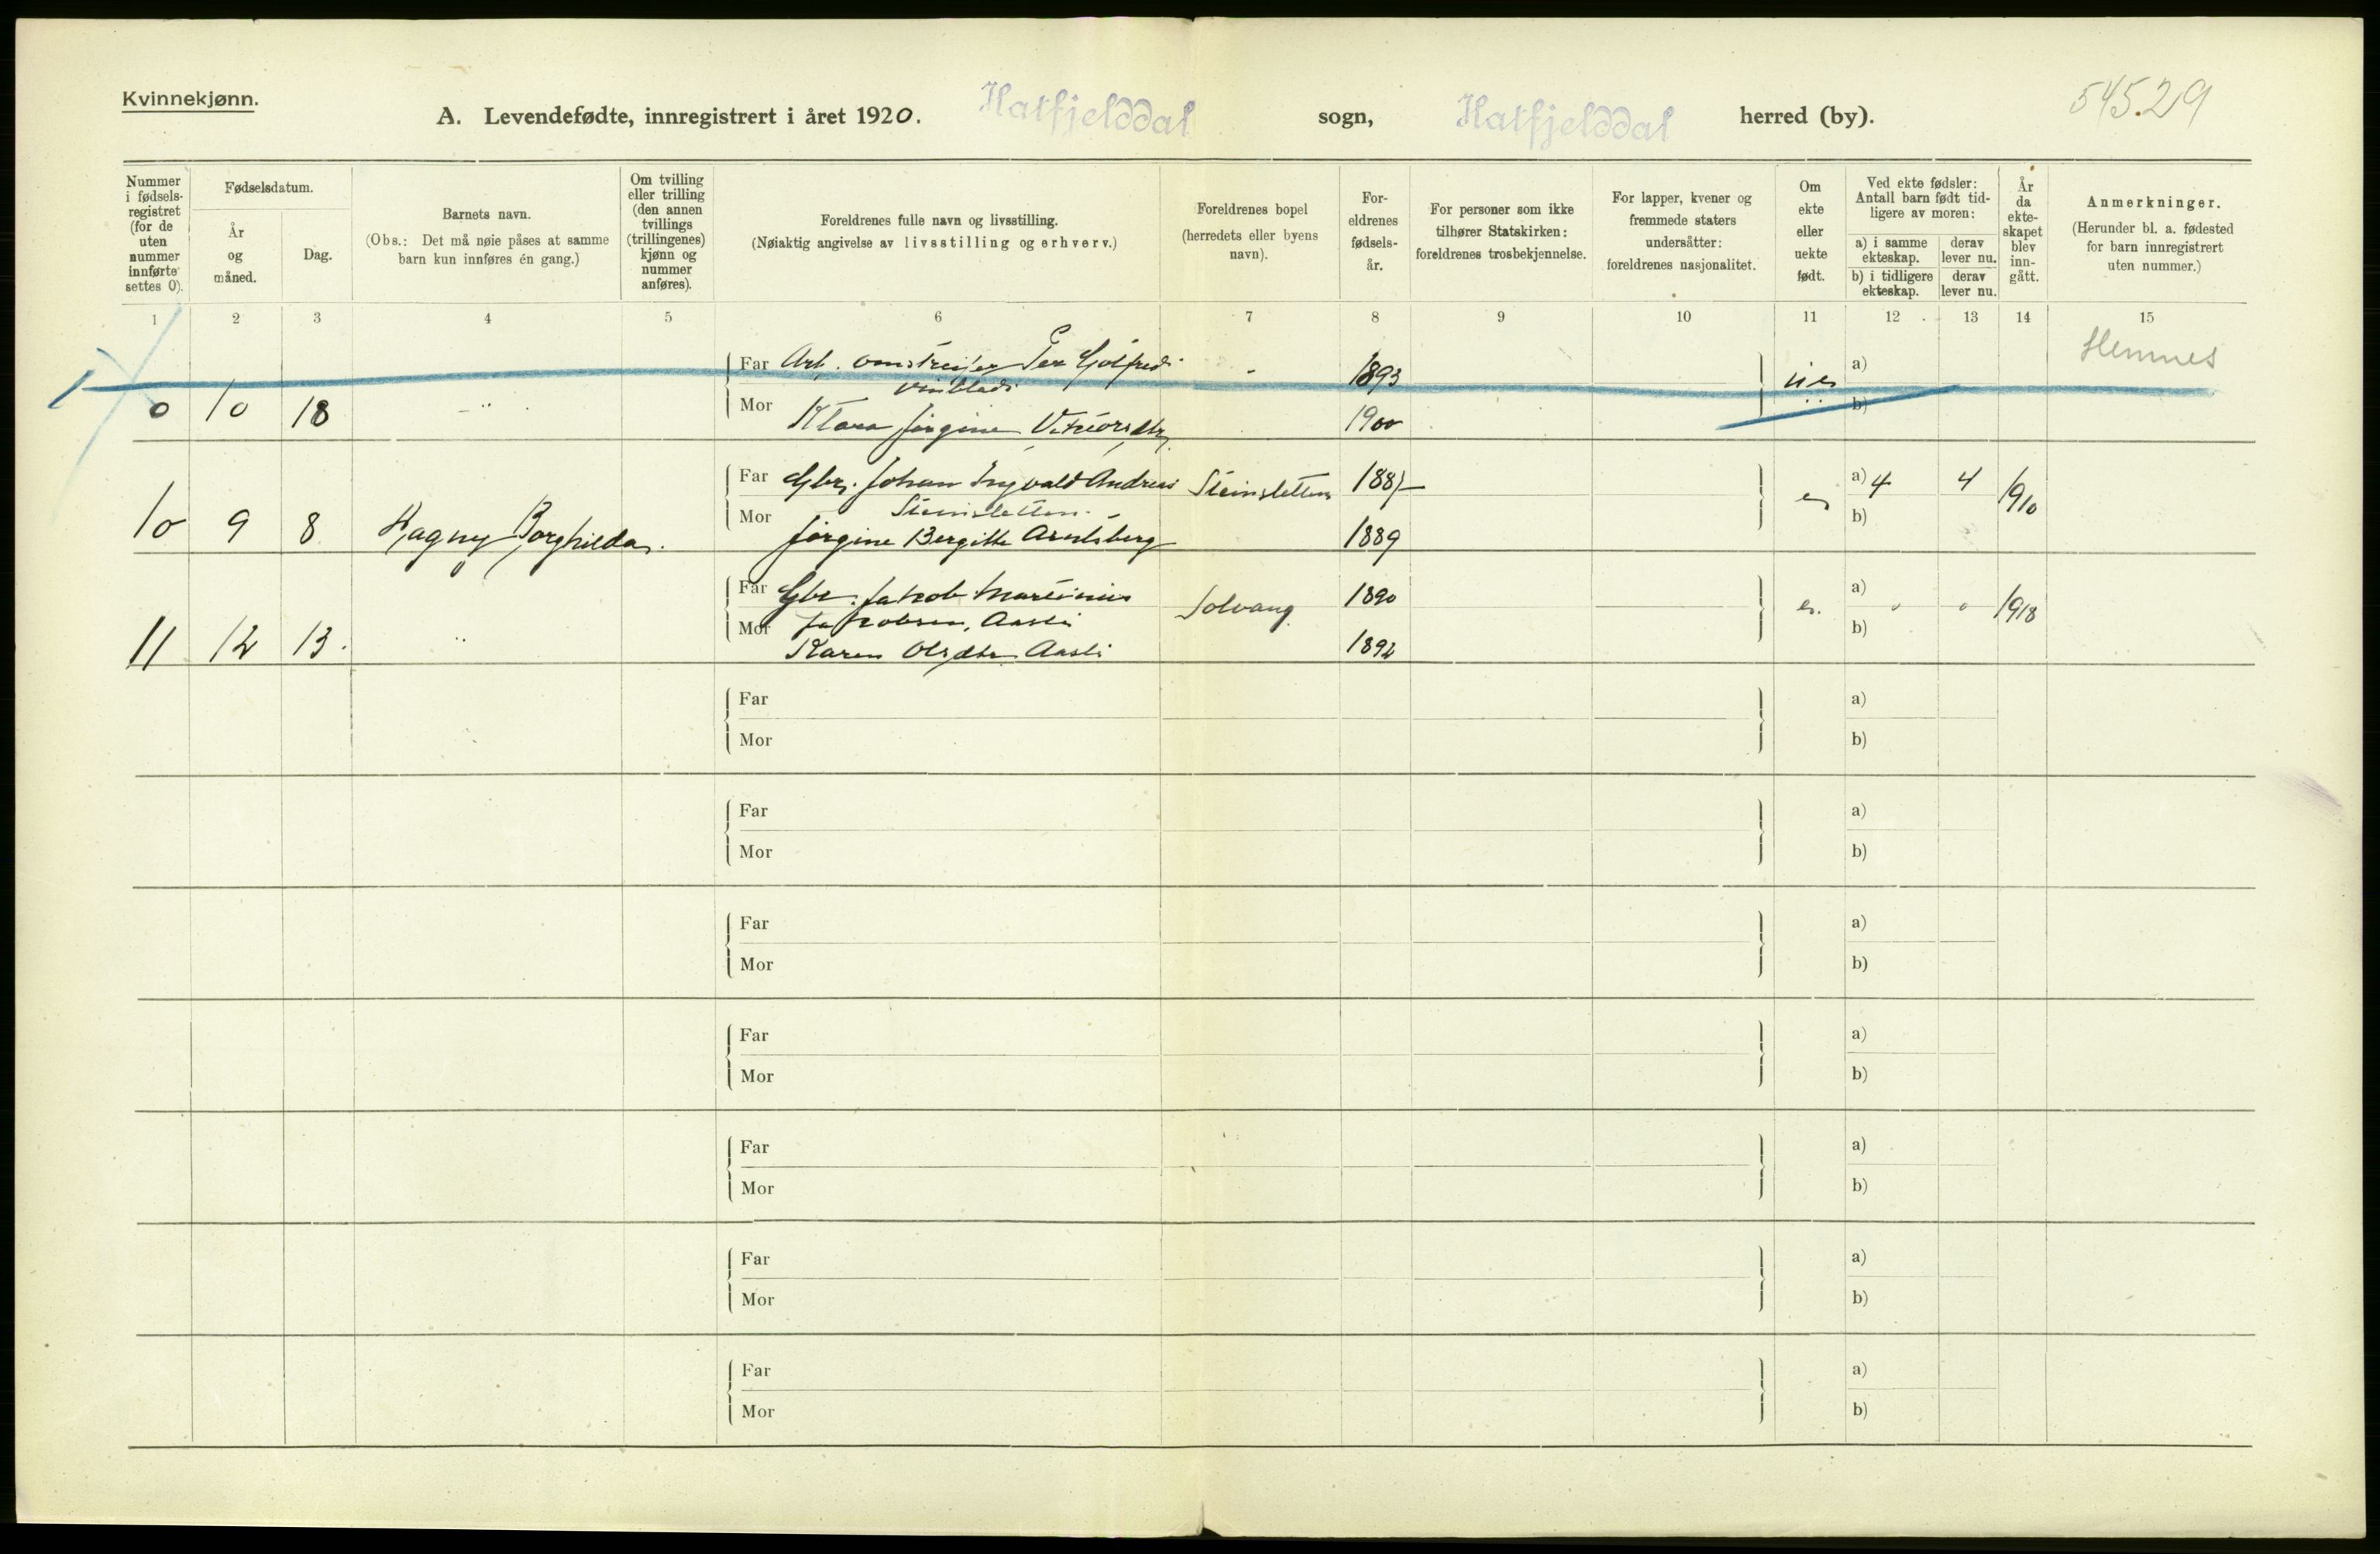 Kvinnekjønn.
A. Levendefødte, innregistrert i året 1920. Hatfjelddal sogn, Hatfjelddal herred (by).
545.29
Nummer i fødsels-registret (for de uten nummer innførte settes 0).
Fødselsdatum.
År og måned.
Dag.
Barnets navn.
(Obs.: Det må nøie påses at samme barn kun innføres én gang.)
Om tvilling eller trilling (den annen tvillings (trillingenes) kjønn og nummer anføres).
Foreldrenes fulle navn og livsstilling.
(Nøiaktig angivelse av livsstilling og erhverv.)
Foreldrenes bopel (herredets eller byens navn).
For-eldrenes fødsels-år.
For personer som ikke tilhører Statskirken: foreldrenes trosbekjennelse.
For lapper, kvener og fremmede staters undersåtter: foreldrenes nasjonalitet.
Om ekte eller uekte født.
Ved ekte fødsler: Antall barn født tid-ligere av moren:
a) i samme ekteskap.
derav lever nu.
b) i tidligere ekteskap.
derav lever nu.
År da ekte-skapet blev inn-gått.
Anmerkninger.
(Herunder bl. a. fødested for barn innregistrert uten nummer.)
1 2 3 4 5 6 7 8 9 10 11 12 13 14 15
Far Arb. Per Gotfred 1893 a) Hemnes
0 10 18 -"-
Mor Klara Jørgine 1900 b)
Far Gbr. Johan Ingvald Andreas Steinsletten 1887 e a) 4 4 1910
Steinsletten
10 9 8 Ragny Borghilda.
Mor Jørgine Bergitte 1889 b)
Far Gbr. Jakob Martinius Solvang 1890 e. a) " " 1918
Jakobsen, Aasli
11 12 13. "
Mor Karen Olsdtr Aasli 1892 b)
Far a)
Mor b)
Far a)
Mor b)
Far a)
Mor b)
Far a)
Mor b)
Far a)
Mor b)
Far a)
Mor b)
Far a)
Mor b)